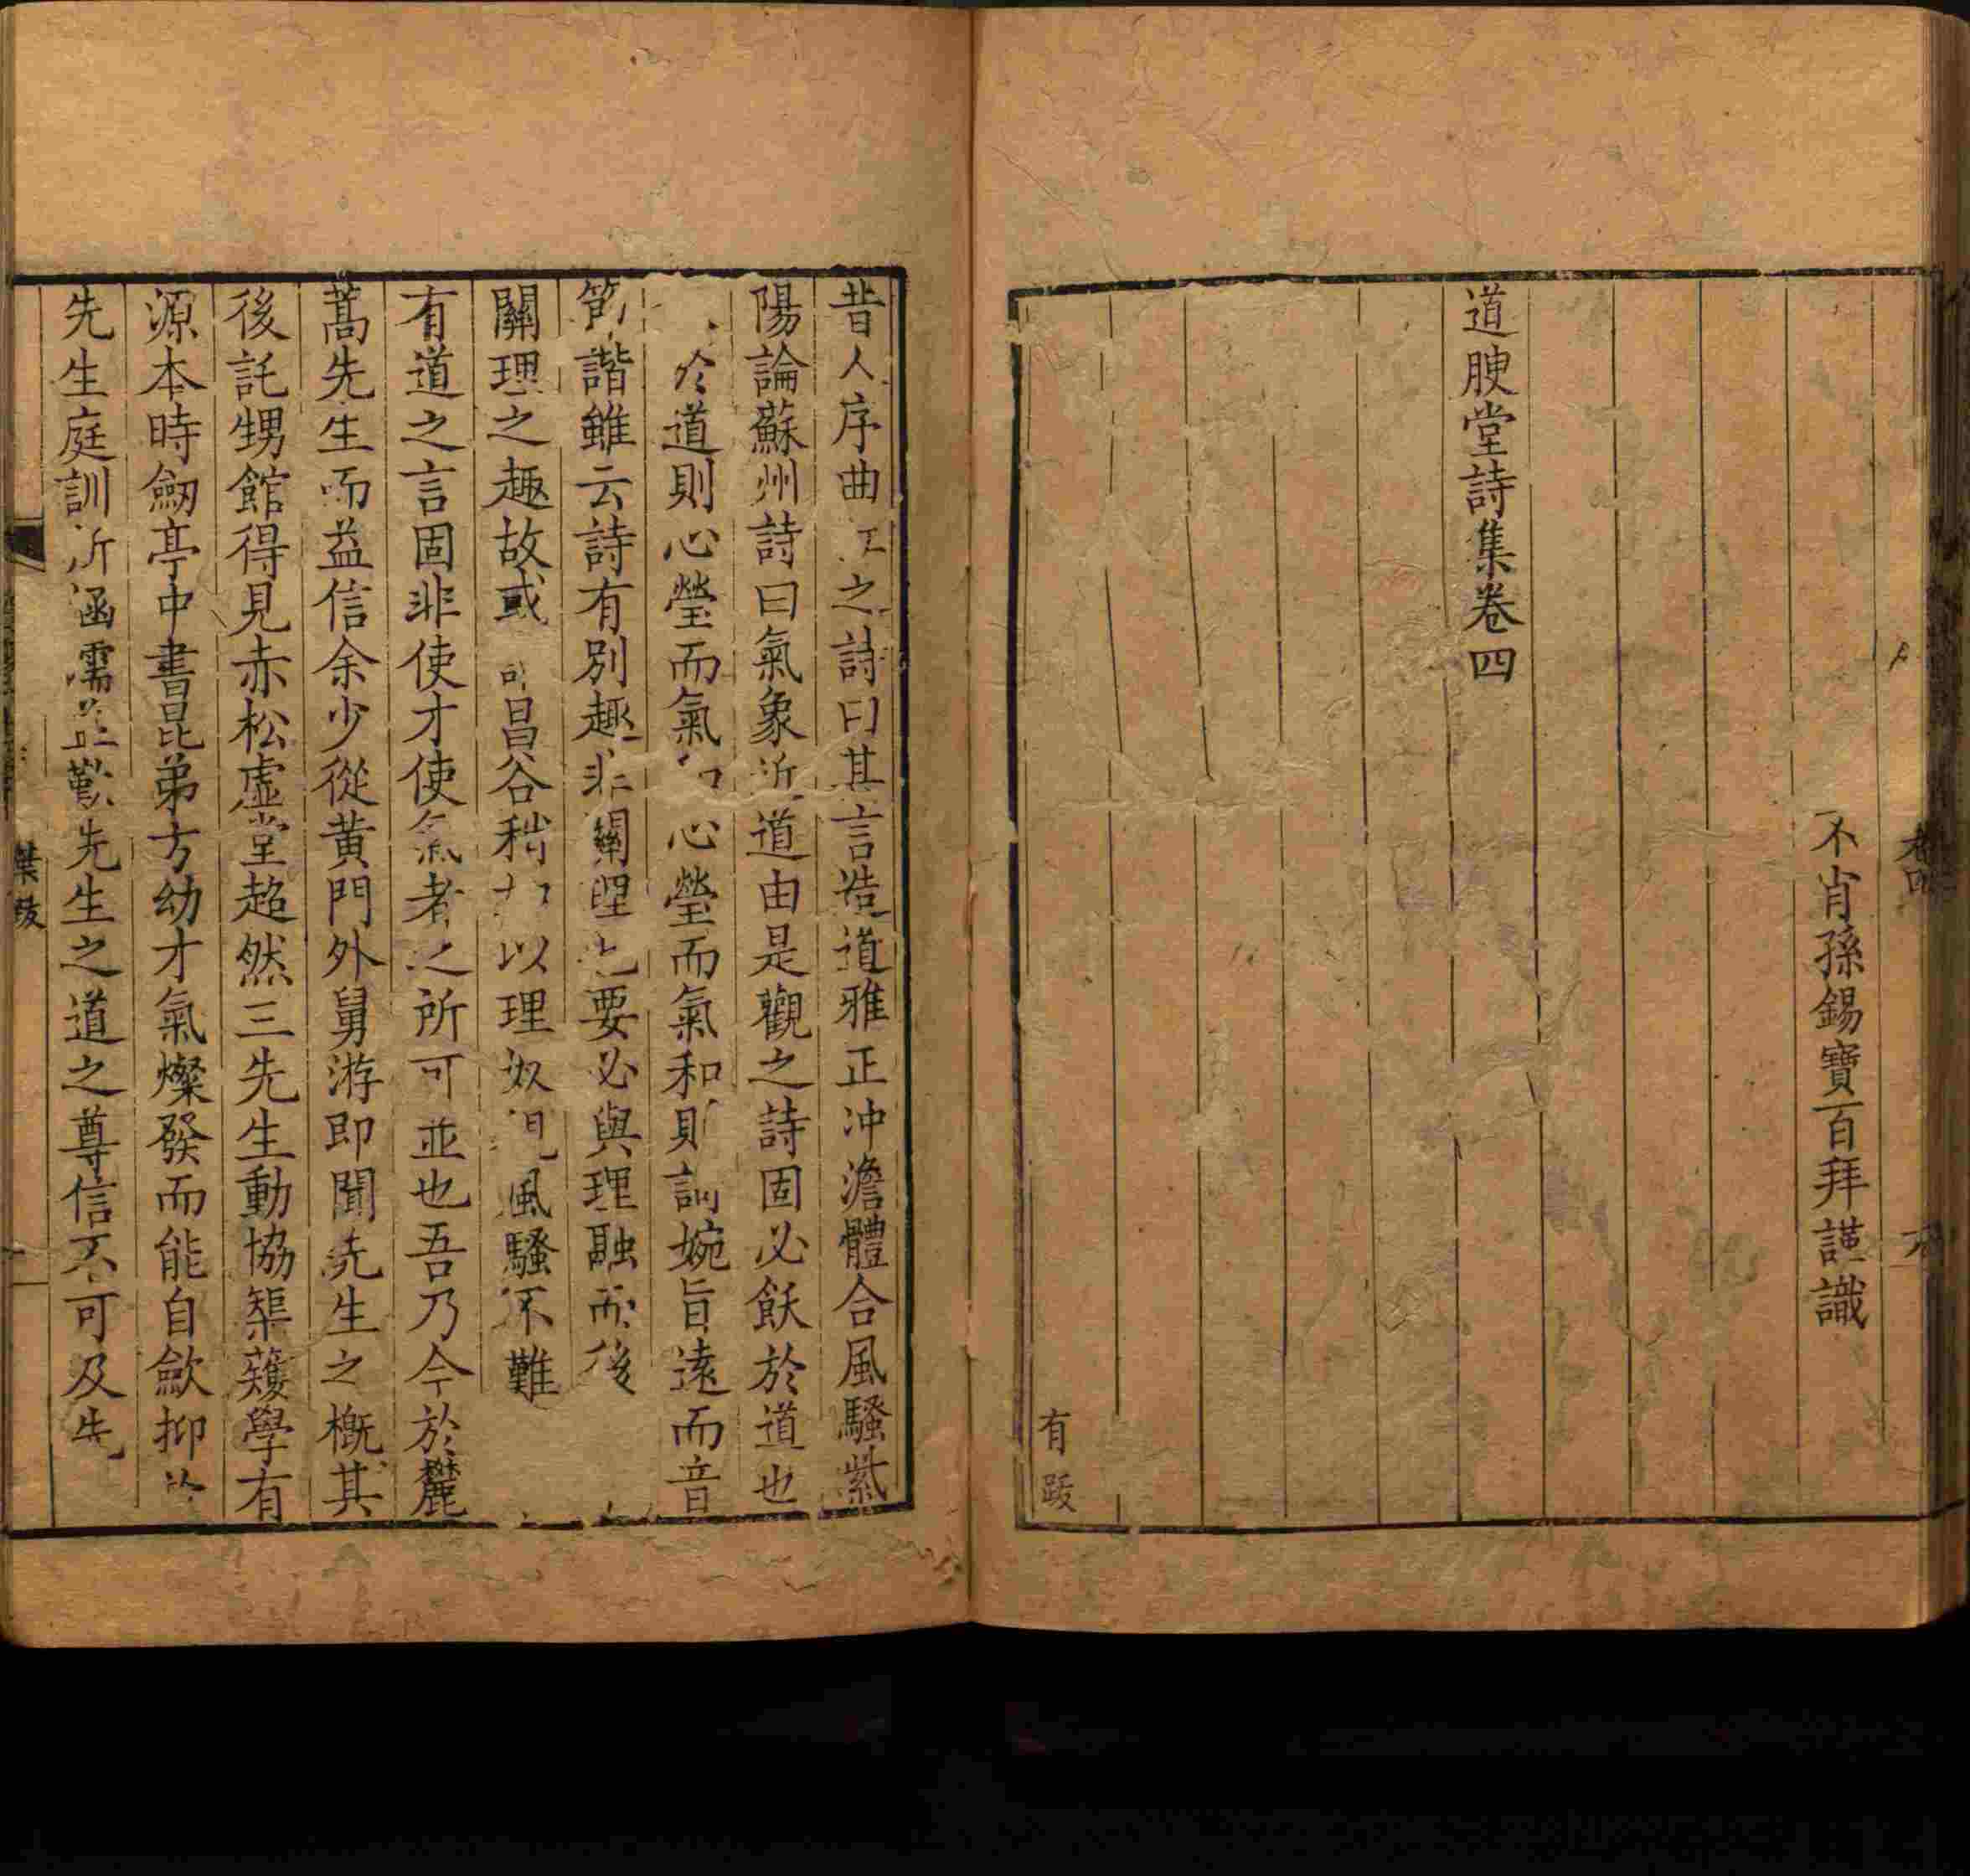 不肖孫錫寶百拜謹識
道腴堂詩集卷四
有跋
昔人序曲江之詩曰其言造道雅正冲澹體合風騷紫
陽論蘇州詩曰氣象近道由是觀之詩固必飫於道也
於道則心瑩而氣和心瑩而氣和則詞婉旨遠而音
節諧雖云詩有別趣非關理也要必與理融而後
關理之趣故或 昌谷稍加以理奴視風騷不難
有道之言固非使才使氣者之所可並也吾乃今於麓
蒿先生而益信余少從黃門外舅游即聞先生之槪其
後託甥館得見赤松虛堂超然三先生動協榘矱學有
源本時劒亭中書昆弟方幼才氣燦發而能自歛抑於
先生庭訓所涵濡並歎先生之道之尊信不可及先